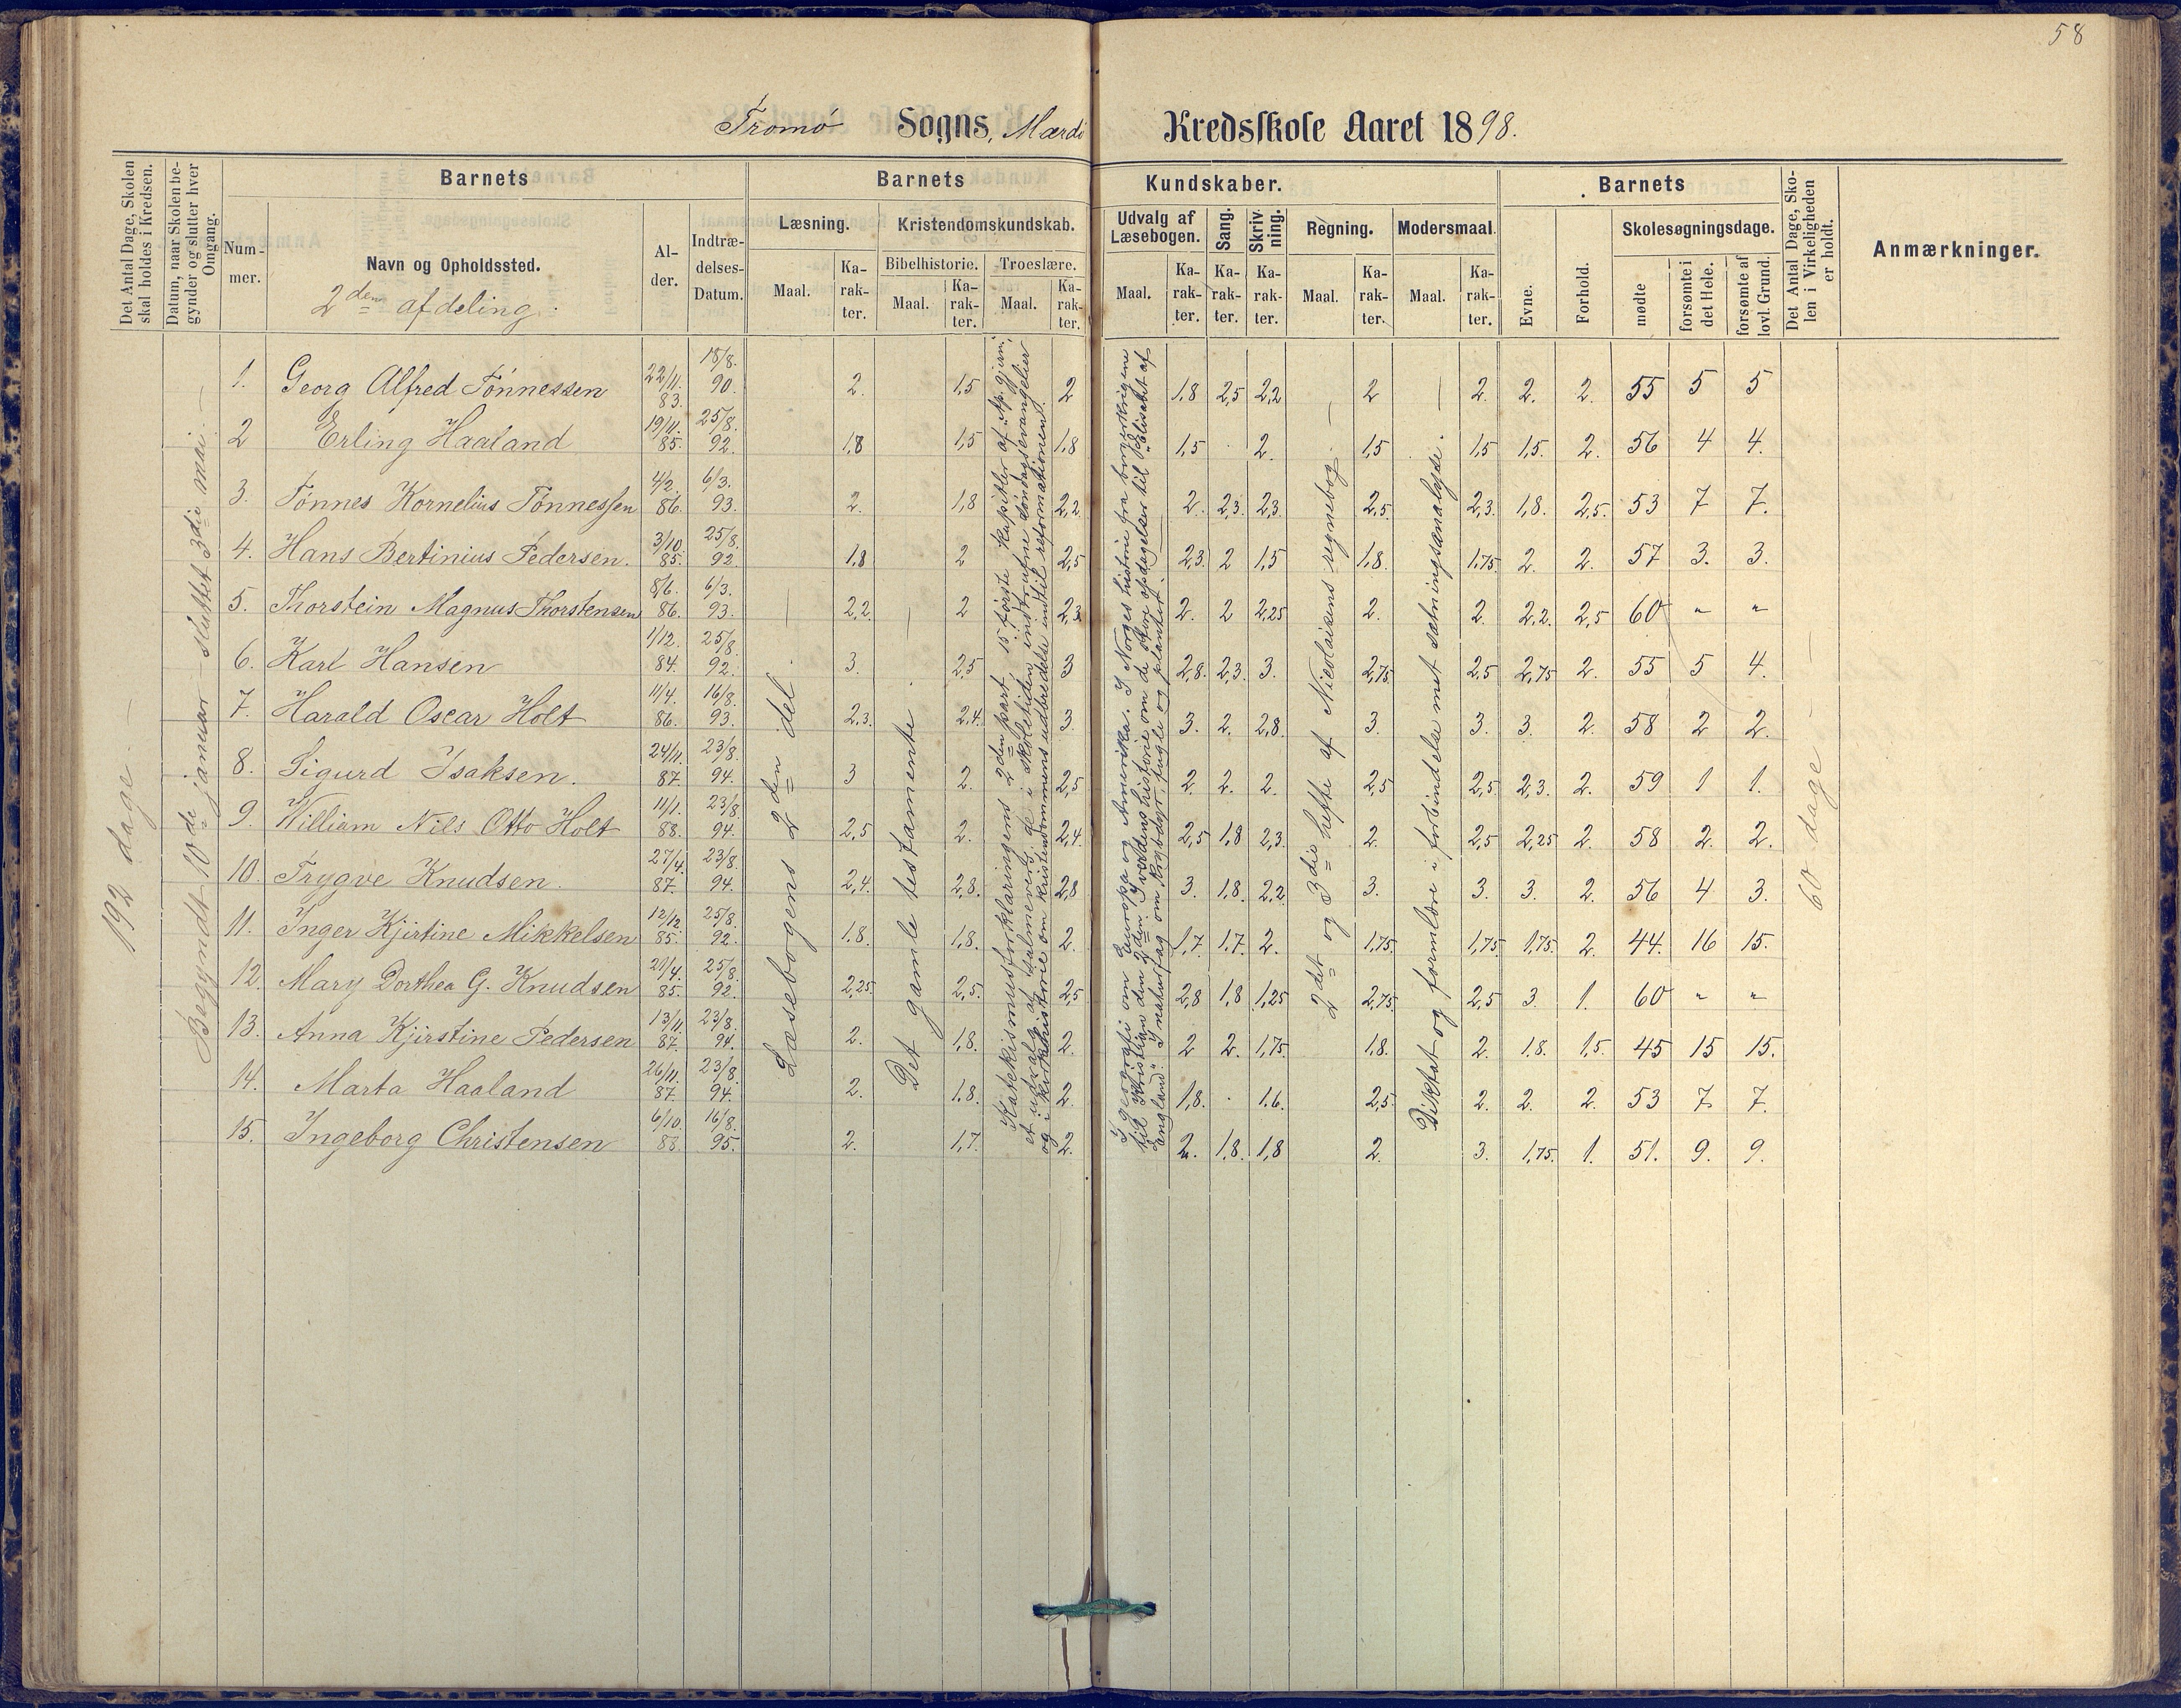 58
Tromø Sogns, Mærdø Kredsskole Aaret 1898.
Det Antal Dage, Skolen skal holdes i Kredsen.
Datum, naar Skolen begynder og slutter hver Omgang.
Barnets
Barnets Kundskaber.
Barnets
Det Antal Dage, Skolen i Virkeligheden er holdt.
Anmærkninger.
Nummer.
Navn og Opholdssted.
2den afdeling.
Alder.
Indtrædelses-Datum.
Læsning.
Kristendomskundskab.
Udvalg af Læsebogen.
Sang.
Skrivning.
Regning.
Modersmaal.
Evne.
Forhold.
Skolesøgningsdage.
Bibelhistorie.
Troeslære.
Maal. Karakter. Maal. Karakter. Maal. Karakter. Maal. Karakter. Karakter. Karakter. Maal. Karakter. Maal. Karakter.
mødte
forsømte i det Hele.
forsømte af lovl. Grund.
192 dage.
Begyndt 10de januar – sluttet 3die mai.
Læsebogens 2den del.
Det gamle testamente.
Katekismusforklaringens 2den part. 15 første kapitler af Ap. gjern.,
et udvalg af salmevers, de i skoletiden indtrufne søndagsevangelier
og i kirkehistorie om kristendommens udbredelse indtil reformationen.
I geografi om Europa og Amerika. I Norges historie fra borgerkrigene
til Kristian den 2den. I verdens historie om de store opdagelser til "Elisabet af
England". I naturfag om krybdyr, fugle og planter.
2det og 3die hefte af Nicolaisens regnebog.
Diktat og formlære i forbindelse med sætningsanalyse.
60 dage
1. Georg Alfred Tønnessen 22/11. 83. 18/8. 90. 2. 1,5 2 1,8 2,5 2,2 2 2. 2. 2. 55 5 5
2 Erling Haaland 19/11. 85. 25/8. 92. 1,8 1,5 1,8 1,5 . 2. 1,5 1,5 1,5. 2. 56 4 4.
3. Tønnes Kornelius Tønnessen 4/2. 86. 6/3. 93. 2. 1,8 2,2 2. 2,3. 2,3. 2,5. 2,3. 1,8. 2,5. 53 7 7.
4. Hans Bertinius Pedersen. 3/10. 85. 25/8. 92. 1,8 2 2,5 2,3. 2 1,5 1,8. 1,75. 2. 2. 57 3. 3.
5. Thorstein Magnus Thorstensen 8/6. 86. 6/3. 93. 2,2. 2 2,3 2. 2 2,25 2. 2. 2,2. 2,5 60 " "
6. Karl Hansen 1/12. 84. 25/8. 92. 3. 2,5 3 2,8. 2,3. 3. 2,75 2,5 2,75 2. 55 5 4.
7. Harald Oscar Holt 11/4. 86. 16/8. 93. 2,3. 2,4. 3. 3. 2. 2,8. 3. 3. 3. 2. 58 2 2.
8. Sigurd Isaksen. 24/11. 87. 23/8. 94. 3 2. 2,5 2. 2. 2. 2,5 2,5. 2,3. 2. 59 1 1.
9. William Nils Otto Holt 11/1. 88. 23/8. 94. 2,5 2. 2,4. 2,5 1,8 2,3. 2. 2,5 2,25 2. 58 2. 2.
10. Trygve Knudsen. 27/4. 87. 23/8. 94. 2,4. 2,8. 2,8 3. 1,8. 2,2. 3. 3. 3. 2. 56 4 3.
11. Inger Kjirtine Mikkelsen 12/12. 85. 25/8. 92. 1,8. 1,8. 2. 1,7 1,7. 2. 1,75. 1,75 1,75. 2. 44. 16 15.
12. Mary Dorthea G. Knudsen 85. 25/8. 92. 2,25. 2,5. 2,5 2,8 1,8 1,25 2,75. 2,5 3. 1. 60 " "
13. Anna Kjirstine Pedersen 13/11. 87. 23/8. 94. 2. 1,8. 2. 2 2. 1,75. 1,8. 2. 1,8. 1,5. 45 15 15.
14. Marta Haaland 26/11. 87. 23/8. 94. 2. 1,8. 2. 1,8. . 1,6. 2,5. 2. 2. 2. 53 7. 7.
15. Ingeborg Christensen 6/10. 88. 16/8. 95. 2. 1,7. 2. 2. 1,8. 1,8 2. 3. 1,75. 1. 51. 9. 9.